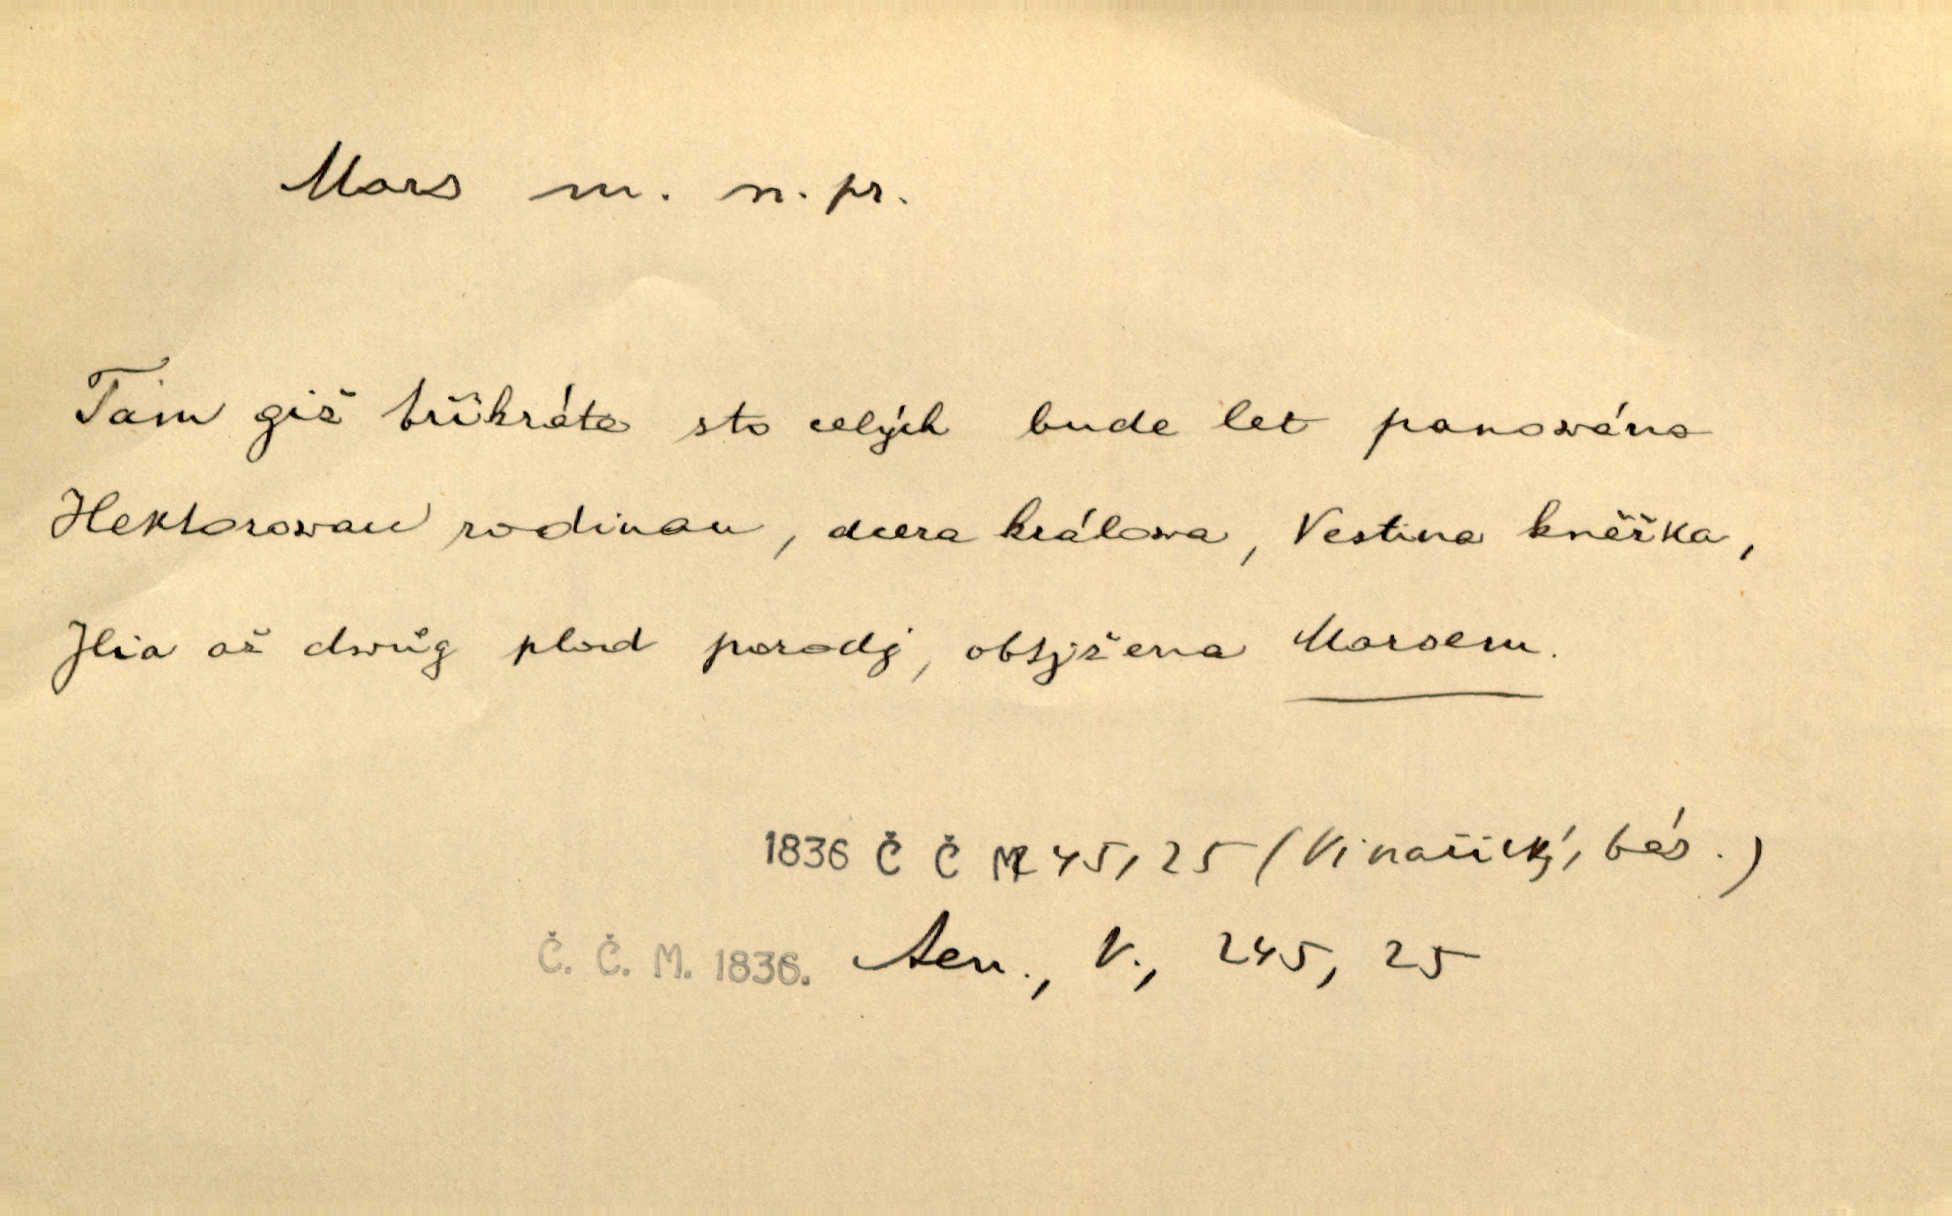 Mars m. n. pr.
Tam giž třikráte sto celých bude let panowáno
Hektorowau rodinau, dcera králowa, Vestina kněžka,
Ilia až dwůg plod porodj, obtjžena Marsem.
1836 Č Č M 45, 25 (Vinařický, bás.)
Č. Č. M. 1836. Aen., V., 245, 25